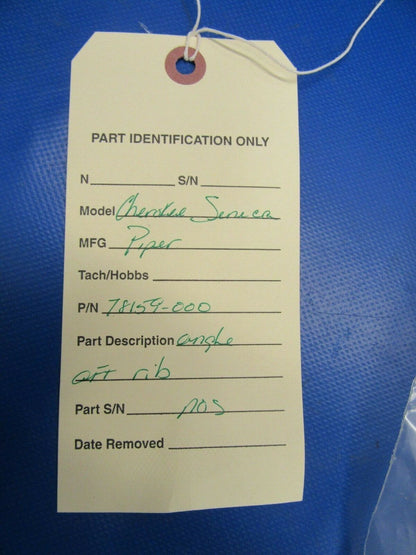 PART IDENTIFICATION ONLY
N____________ S/N____________
Model Cherokee Seneca
MFG Piper
Tach/Hobbs ____________
P/N 78159-000
Part Description angle
aft rib
Part S/N nos
Date Removed ____________